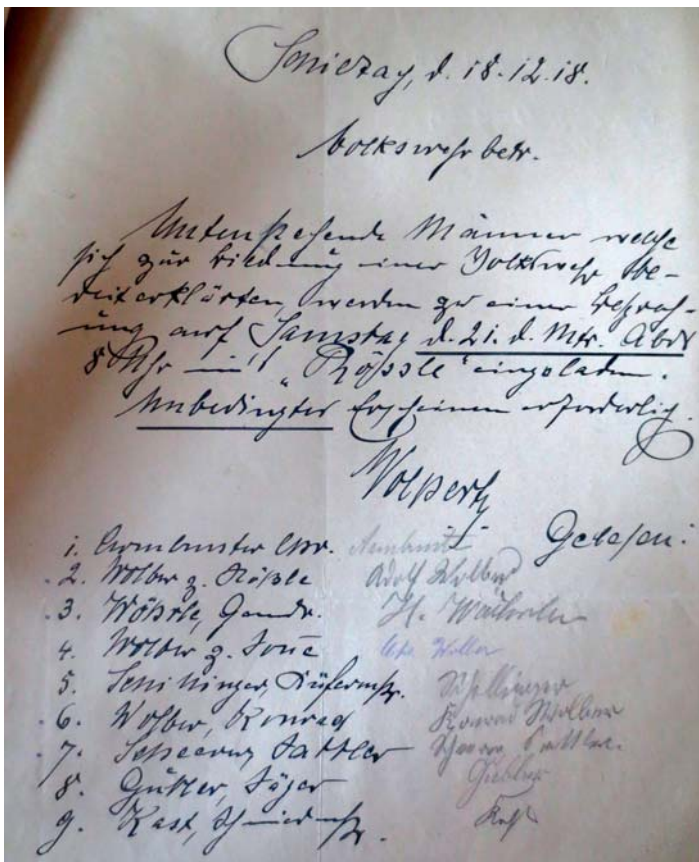 Schiltach, d. 18.12.18.
Volkswehr betr.
Untenstehende Männer welche
sich zur Bildung einer Volkswehr be-
reiterklärten, werden zu einer Besprech-
ung auf Samstag d. 21. d. Mts. Abds
8 Uhr ins "Rössle" eingeladen.
Unbedingtes Erscheinen erforderlich.
Wolpert
Gelesen:
1. Armbruster Chr.
2. Wolber z. Rößle Adolf Wolber
3. Wöhrle, Gendr. H. Wöhrle
4. Wolber z. Sonne Wolber
5. Schillinger, Küfermstr. Schillinger
6. Wolber, Konrad Konrad Wolber
7. Scheerer Sattler Scheerer Sattler
8. Jäger
9. Kast, Schmiedmstr. Kast